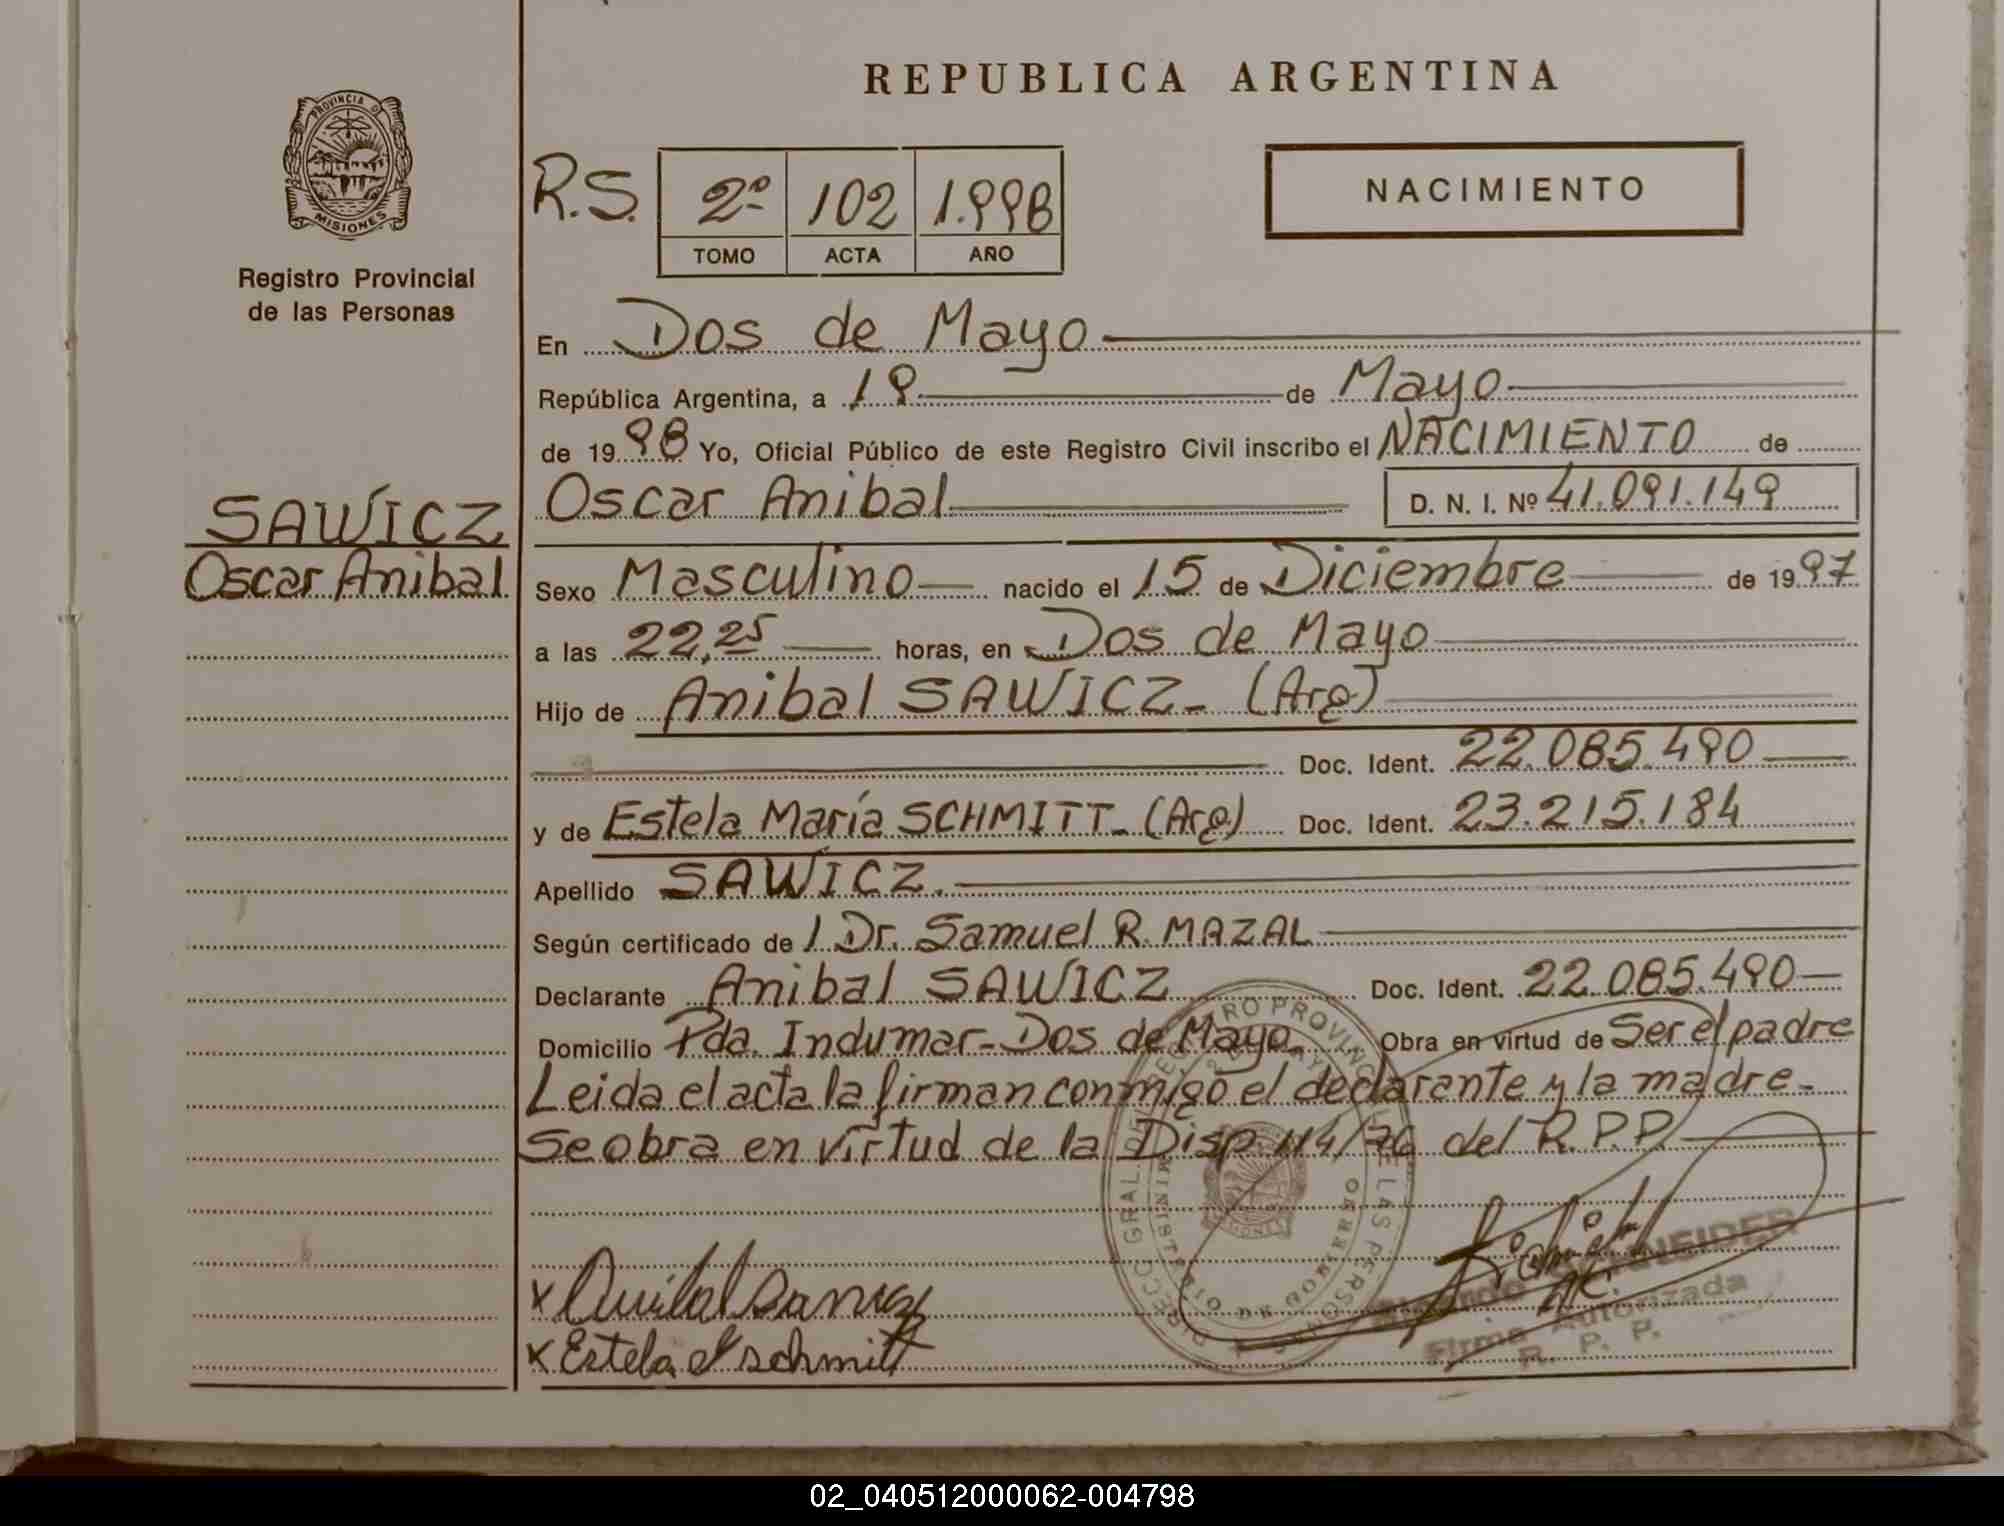 REPUBLICA ARGENTINA
PROVINCIA DE
MISIONES
Registro Provincial
de las Personas
R.S. 2º 102 1.998
TOMO ACTA AÑO
NACIMIENTO
En Dos de Mayo
República Argentina, a 19 de Mayo
de 1998 Yo, Oficial Público de este Registro Civil inscribo el NACIMIENTO de
SAWICZ
Oscar Anibal
Oscar Anibal D. N. I. Nº 41.091.149
Sexo Masculino nacido el 15 de Diciembre de 1997
a las 22,25 horas, en Dos de Mayo
Hijo de Anibal SAWICZ - (Arg)
Doc. Ident. 22.085.490
y de Estela María SCHMITT - (Arg) Doc. Ident. 23.215.184
Apellido SAWICZ.
Según certificado de / Dr. Samuel R. MAZAL
Declarante Anibal SAWICZ Doc. Ident. 22.085.490
Domicilio Pda. Indumar - Dos de Mayo. Obra en virtud de Ser el padre
Leida el acta la firman conmigo el declarante y la madre -
Se obra en virtud de la Disp. 114/76 del R.P.P.
x Anibal Sawicz
x Estela M schmitt
DIRECC. GRAL. DEL REGISTRO PROVINCIAL DE LAS PERSONAS
SCHNEIDER
Firma Autorizada
R. P. P.
02_040512000062-004798